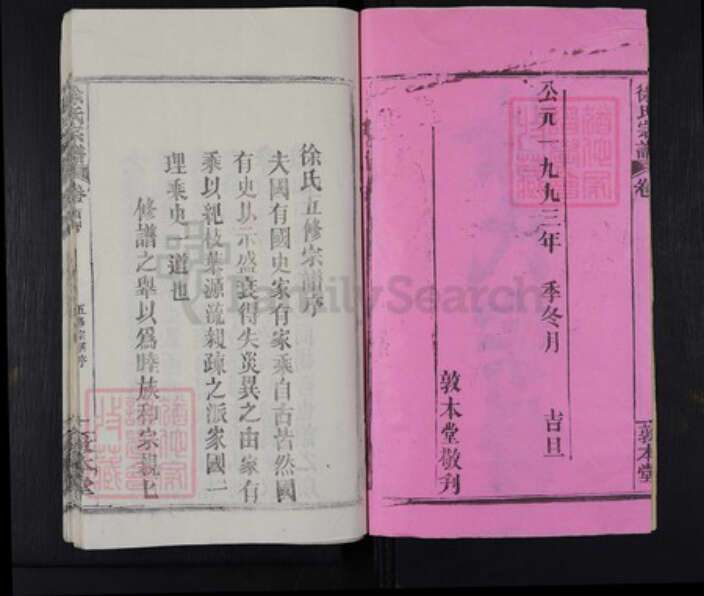 徐氏宗譜
卷
敦本堂
公元一九九三年 季冬月 吉旦
敦本堂敬刋
徐氏五修宗譜序
夫國有國史家有家乘自古皆然國
有史以示盛衰得失災異之由家有
乘以紀枝葉源流親疎之派家國一
理乘史 道也
修譜之舉以爲睦族和宗親七
五修宗譜序
FamilySearch